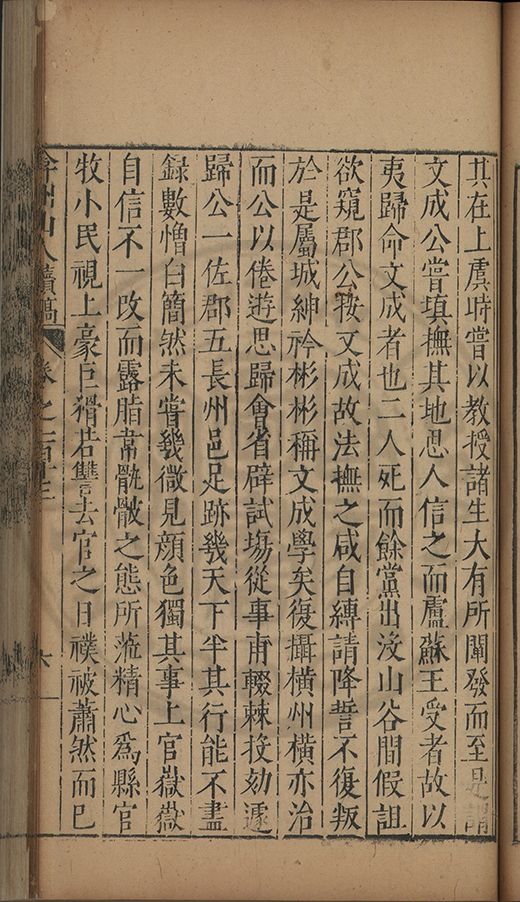 其在上虞時嘗以教授諸生大有所闡發而至是謂
文成公嘗填撫其地恩人信之而盧蘇王受者故以
夷歸命文成者也二人死而餘黨出沒山谷間假詛
欲窺郡公按文成故法撫之咸自縛請降誓不復叛
於是屬城紳衿彬彬稱文成學矣復攝橫州橫亦治
而公以倦遊思歸會省辟試塲從事甫輟棘投劾遽
歸公一佐郡五長州邑足跡幾天下半其行能不盡
録數憎白簡然未嘗幾微見顔色獨其事上官嶽嶽
自信不一改而露脂韋骫骳之態所蒞精心爲縣官
牧小民視上豪巨猾若讐去官之日襆被蕭然而已
弇州山人續稿 卷之一百
六